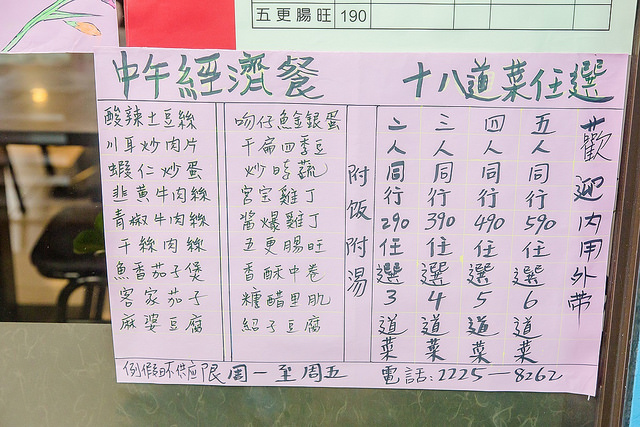 五更腸旺 190
中午經濟餐 十八道菜任選
酸辣土豆絲
川耳炒肉片
蝦仁炒蛋
韭黃牛肉絲
青椒牛肉絲
干絲肉絲
魚香茄子煲
客家茄子
麻婆豆腐
吻仔魚金銀蛋
干扁四季豆
炒時蔬
宮宝雞丁
醬爆雞丁
五更腸旺
香酥中卷
糖醋里肌
紹子豆腐
附飯附湯
二人同行290任選3道菜
三人同行390任選4道菜
四人同行490任選5道菜
五人同行590任選6道菜
歡迎內用外帶
例假日不供应限周一至周五 電話:2225-8262